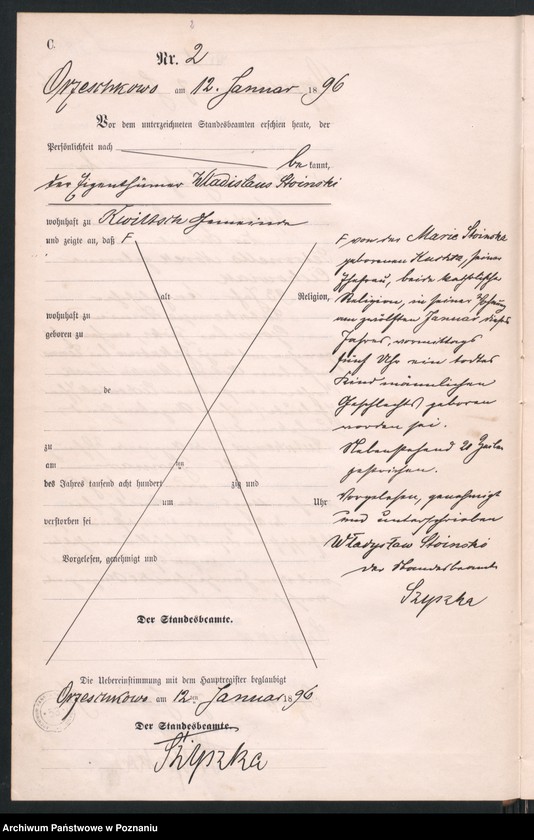 C.
Nr. 2
Orzeschkowo am 12. Januar 1896
Vor dem unterzeichneten Standesbeamten erschien heute, der
Persönlichkeit nach
be kannt,
der Eigenthümer Wladislaus Stoinski
wohnhaft zu Kwiltsch Gemeinde
und zeigte an, daß F
alt Religion,
wohnhaft zu
geboren zu
de
zu
am ten
des Jahres tausend acht hundert zig und
um Uhr
verstorben sei
Vorgelesen, genehmigt und
Der Standesbeamte.
F von der Marie Stoinska
geborenen, seiner
Ehefrau, beide katholischer
Religion, in seiner Wohnung
am zwölften Januar dieses
Jahres, vormittags
fünf Uhr ein todtes
Kind männlichen
Geschlechts geboren
worden sei.
Nebenstehend 20 Zeilen
gestrichen.
Vorgelesen, genehmigt
und unterschrieben
Władysław Stoinski
Der Standesbeamte
Szyszka
Die Uebereinstimmung mit dem Hauptregister beglaubigt
Orzeschkowo am 12 ten Januar 1896
Der Standesbeamte.
Szyszka
Archiwum Państwowe w Poznaniu